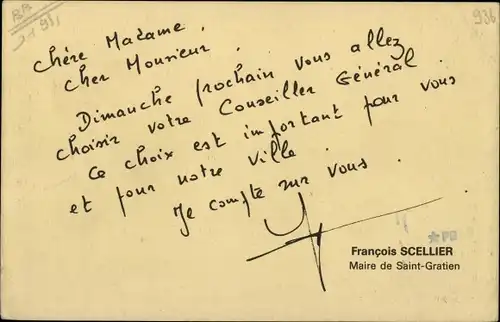 BB
936
Chère Madame,
Cher Monsieur,
Dimanche prochain vous allez
choisir votre Conseiller Général.
Ce choix est important pour vous
et pour notre ville.
Je compte sur vous.
*PB
François SCELLIER
Maire de Saint-Gratien